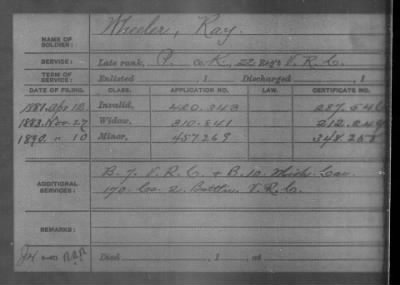 NAME OF SOLDIER: Wheeler, Ray.
SERVICE: Late rank, P. Co. K, 22 Reg't V. R. C.
TERM OF SERVICE: Enlisted , 1 Discharged , 1
DATE OF FILING. CLASS. APPLICATION NO. LAW. CERTIFICATE NO.
1881 Apr 12. Invalid, 420.343 287.546
1883. Nov. 27 Widow, 310.841 212.249
1890. " 10 Minor, 457269 348.258
ADDITIONAL SERVICES: B. 7. V. R. C. + B. 10. Mich. Cav.
170. Co. 2. Battn. V. R. C.
REMARKS:
Died , 1 , at